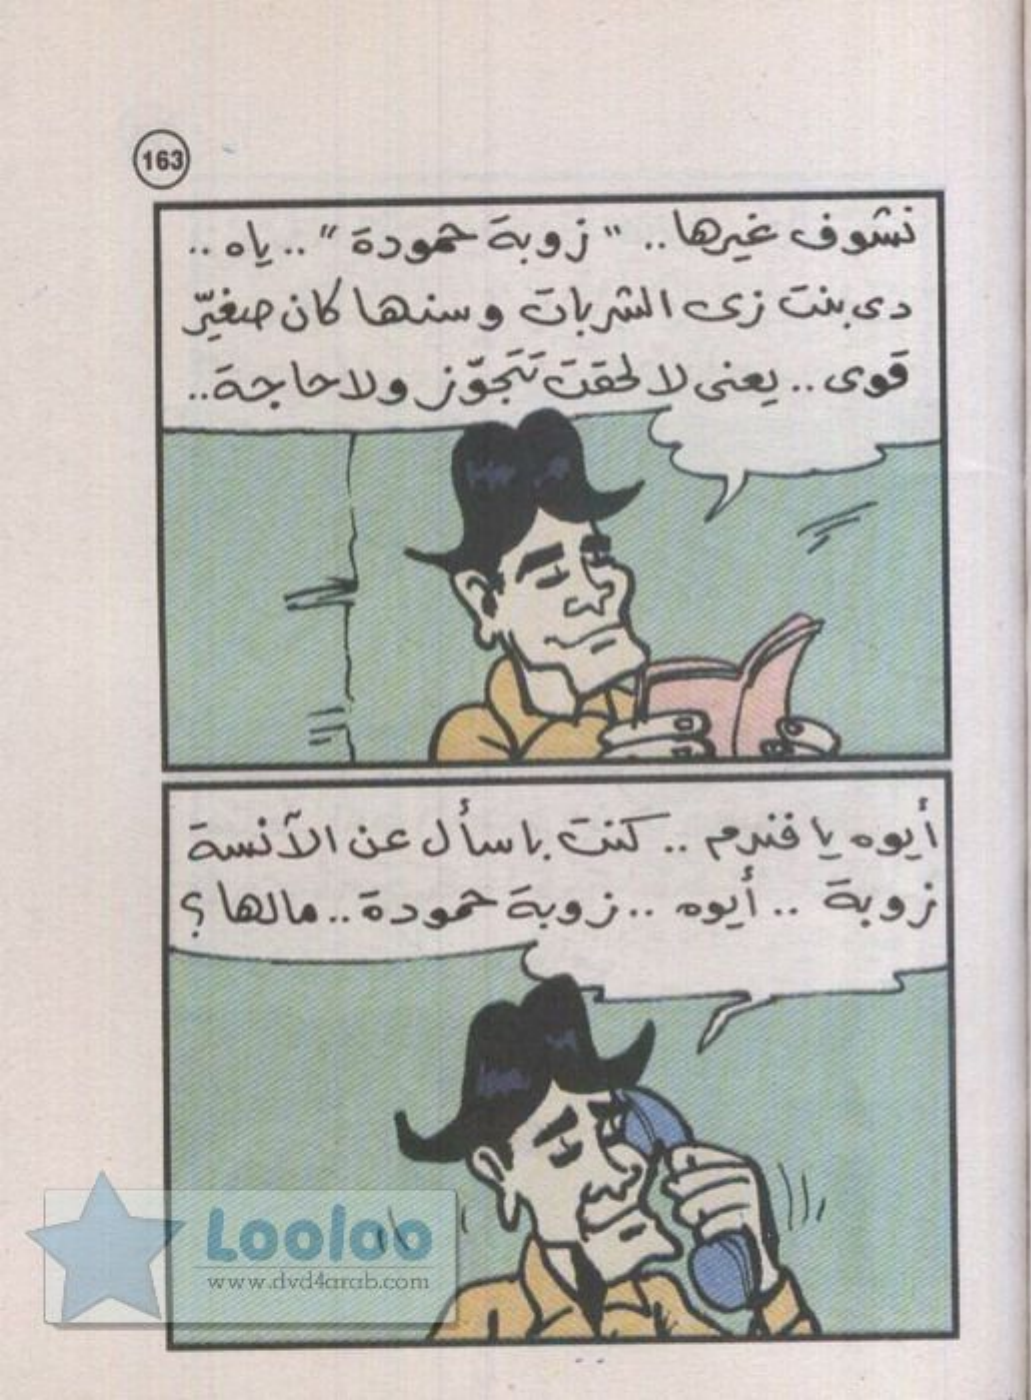 163
نشوف غيرها.. "زوبة حمودة".. ياه..
دى بنت زى الشربات وسنها كان صغيّر
قوى.. يعنى لا لحقت تتجوّز ولا حاجة..
أيوه يا فندم.. كنت باسأل عن الآنسة
زوبة.. أيوه.. زوبة حمودة.. مالها؟
Looloo
www.dvd4arab.com